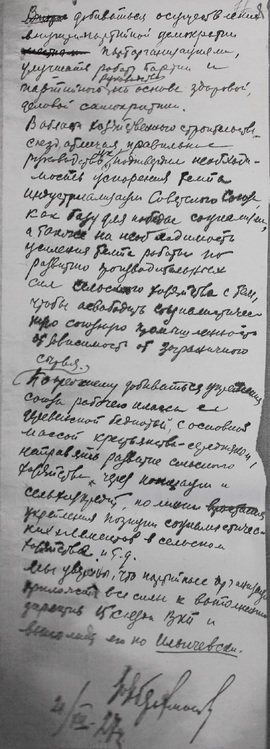 добиваться осуществления
внутрипартийной демократии
парторганизациями,
улучшить работу партии и
партийного на основе здоровой,
деловой самокритики.
В области хозяйственного строительства
съезд, правильное
руководство, подтвердил необходи-
мость ускорения темпа
индустриализации Советского Союза,
как базу для победы социализма,
а также на необходимость
усиления темпа работы по
развитию производительных
сил сельского хозяйства с тем,
чтобы освободить социалистичес-
кую союзную промышленность
от зависимости от заграничного
По прежнему добиваться укрепления
союза рабочего класса с
деревенской беднотой, с основной
массой крестьянства - середняком,
направлять развитие сельского
хозяйства, через кооперацию и
по линии
укрепления позиции социалистичес-
ких элементов в сельском
хозяйстве и т.д.
Мы уверены, что партийные организации
приложат все силы к выполнению
директив съезда ВКП и
выполнят его по Ильичевски.
21/XII-27г.